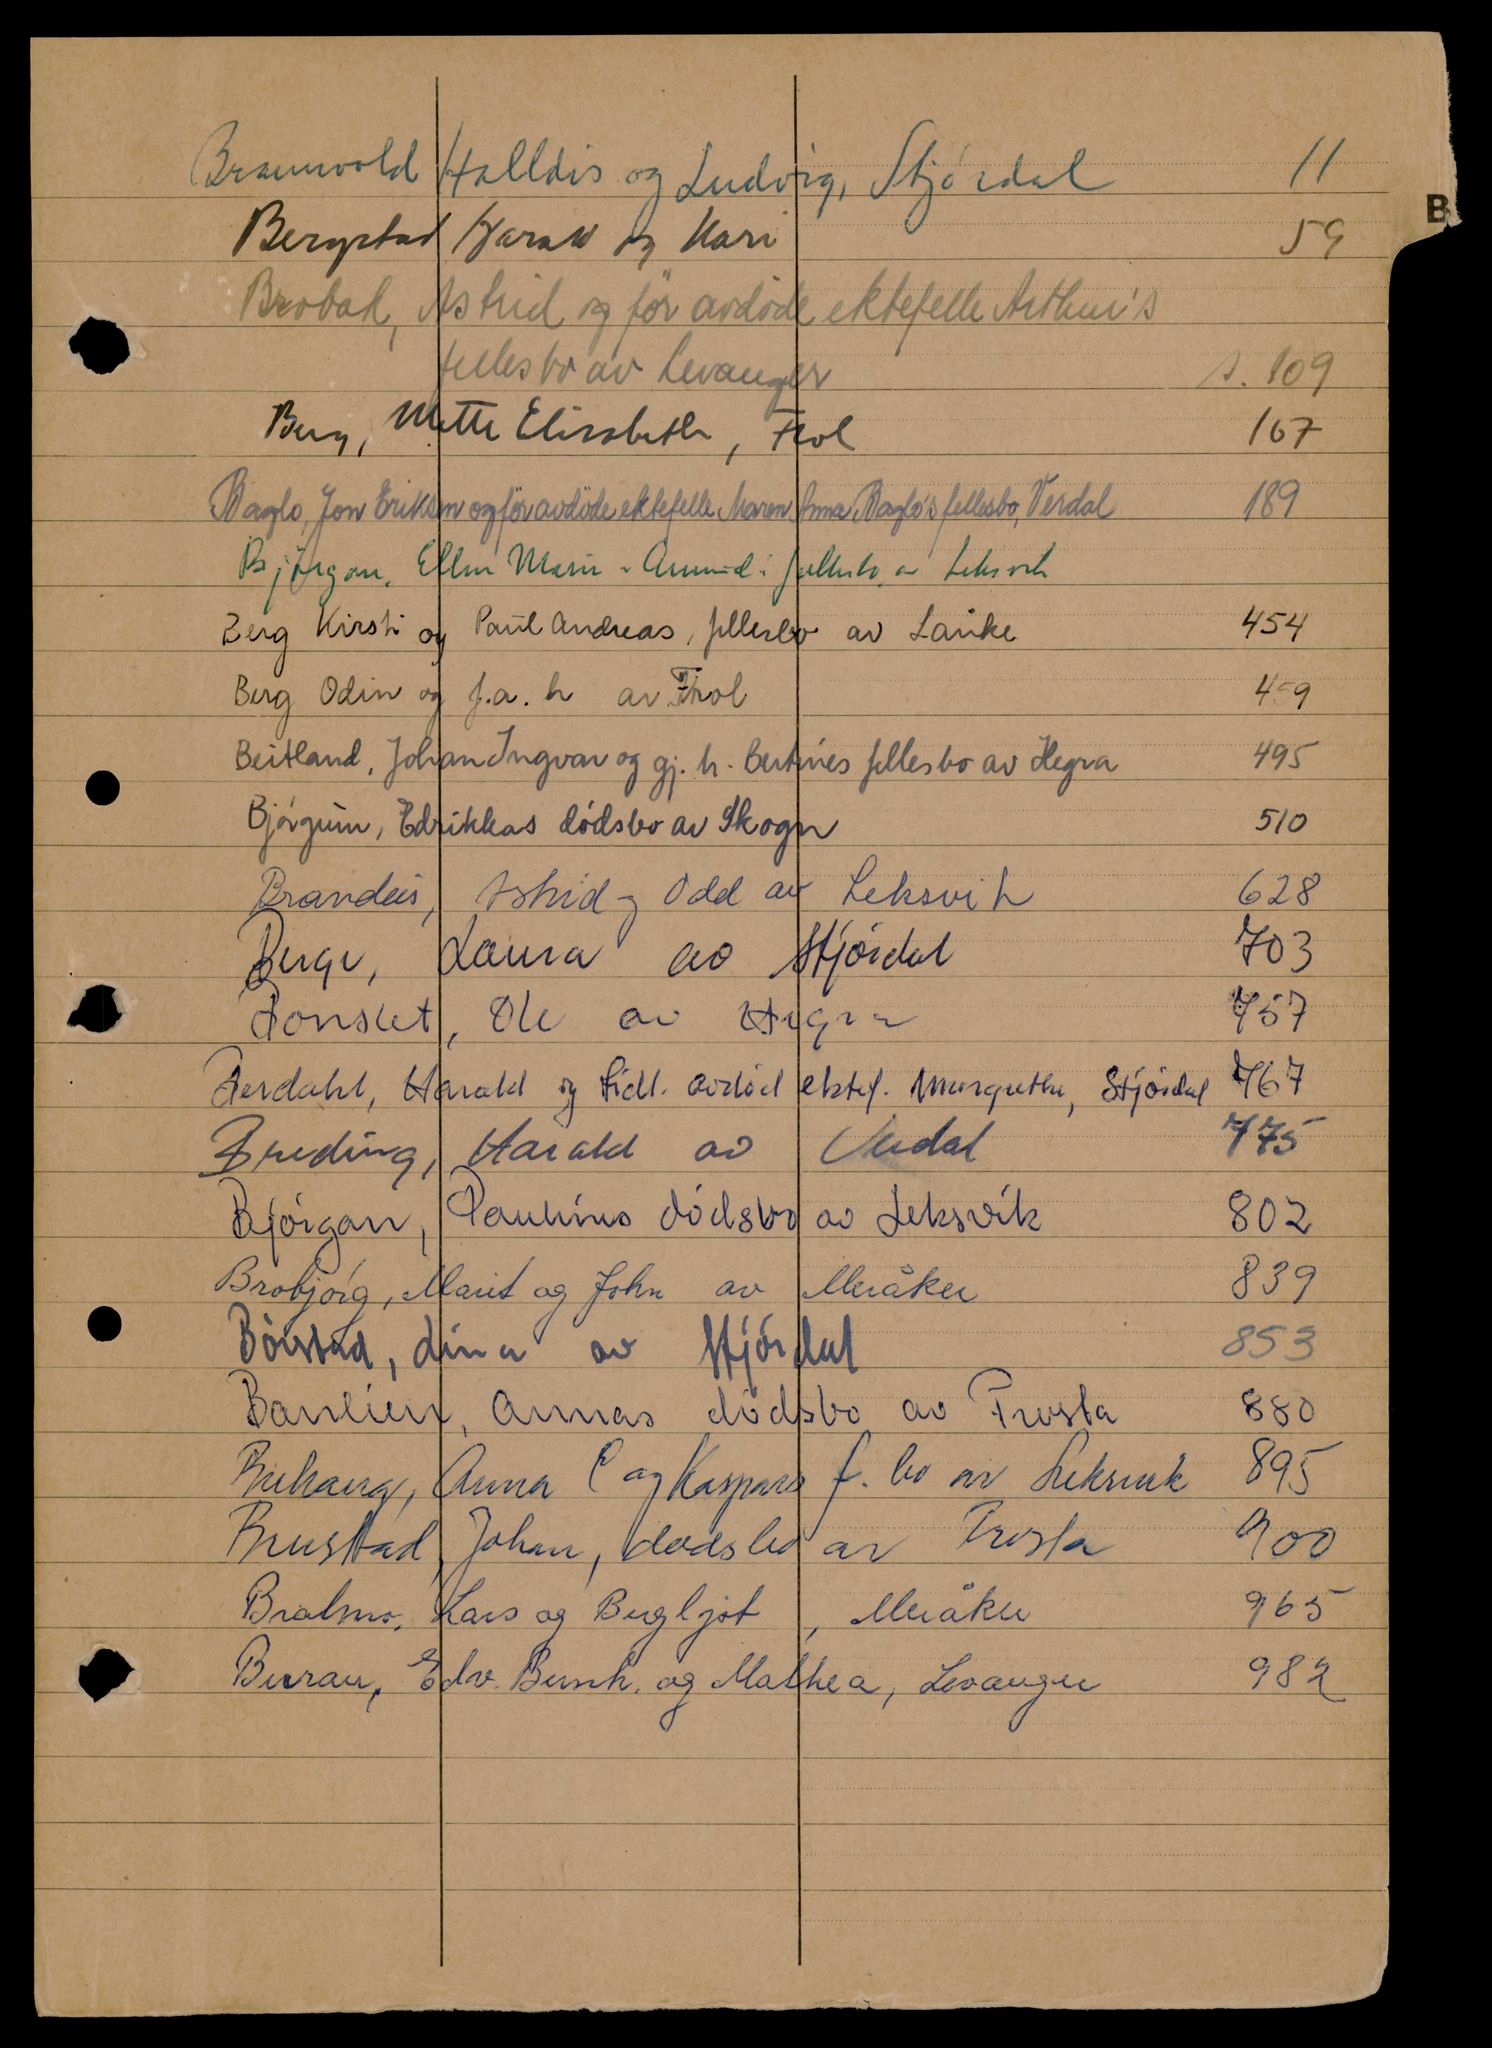 Braunvold Halldis og Ludvig, Stjórdal 11
B
Bergstad Harald og Kari 59
Brobak, Astrid og för avdöde ektefelle Arthur's
fellesbo av Levanger s. 109
Berg, Mette Elisabeth, Frol 167
Baglo, Jon Eriksen og för avdöde ektefelle Maren Anna Baglo's fellesbo, Verdal 189
Björgan, Ellen Marie Amund fellesbo, av Leksvik
Berg Kirsti og Paul Andreas, fellesbo av Lånke 454
Berg Odin og f.a.h av Frol 459
Beitland, Johan Ingvar og gj. h. Bertines fellesbo av Hegra 495
Bjórgum, Edrikkas dódsbo av Skogn 510
Brandeis, Astrid og Odd av Leksvik 628
Berge, Laura av Stjórdal 703
Bonslet, Ole av Hegra 757
Berdahl, Harald og tidl. avdöd ektef. Margrethe, Stjórdal 767
Breding, Harald av Verdal 775
Bjórgan, Paulines dódsbo av Leksvik 802
Brobjórg, Marit og John av Meråker 839
Bórstad, Lina av Stjórdal 853
Banlien, Annas dódsbo av Frosta 880
Buhaug, Anna E og Kaspars f. bo av Leksvik 895
Brustad, Johan, dødsbo av Frosta 900
Bralmo, Lars og Bergljot, Meråker 965
Buran, Edv. Bernh. og Mathea, Levanger 982